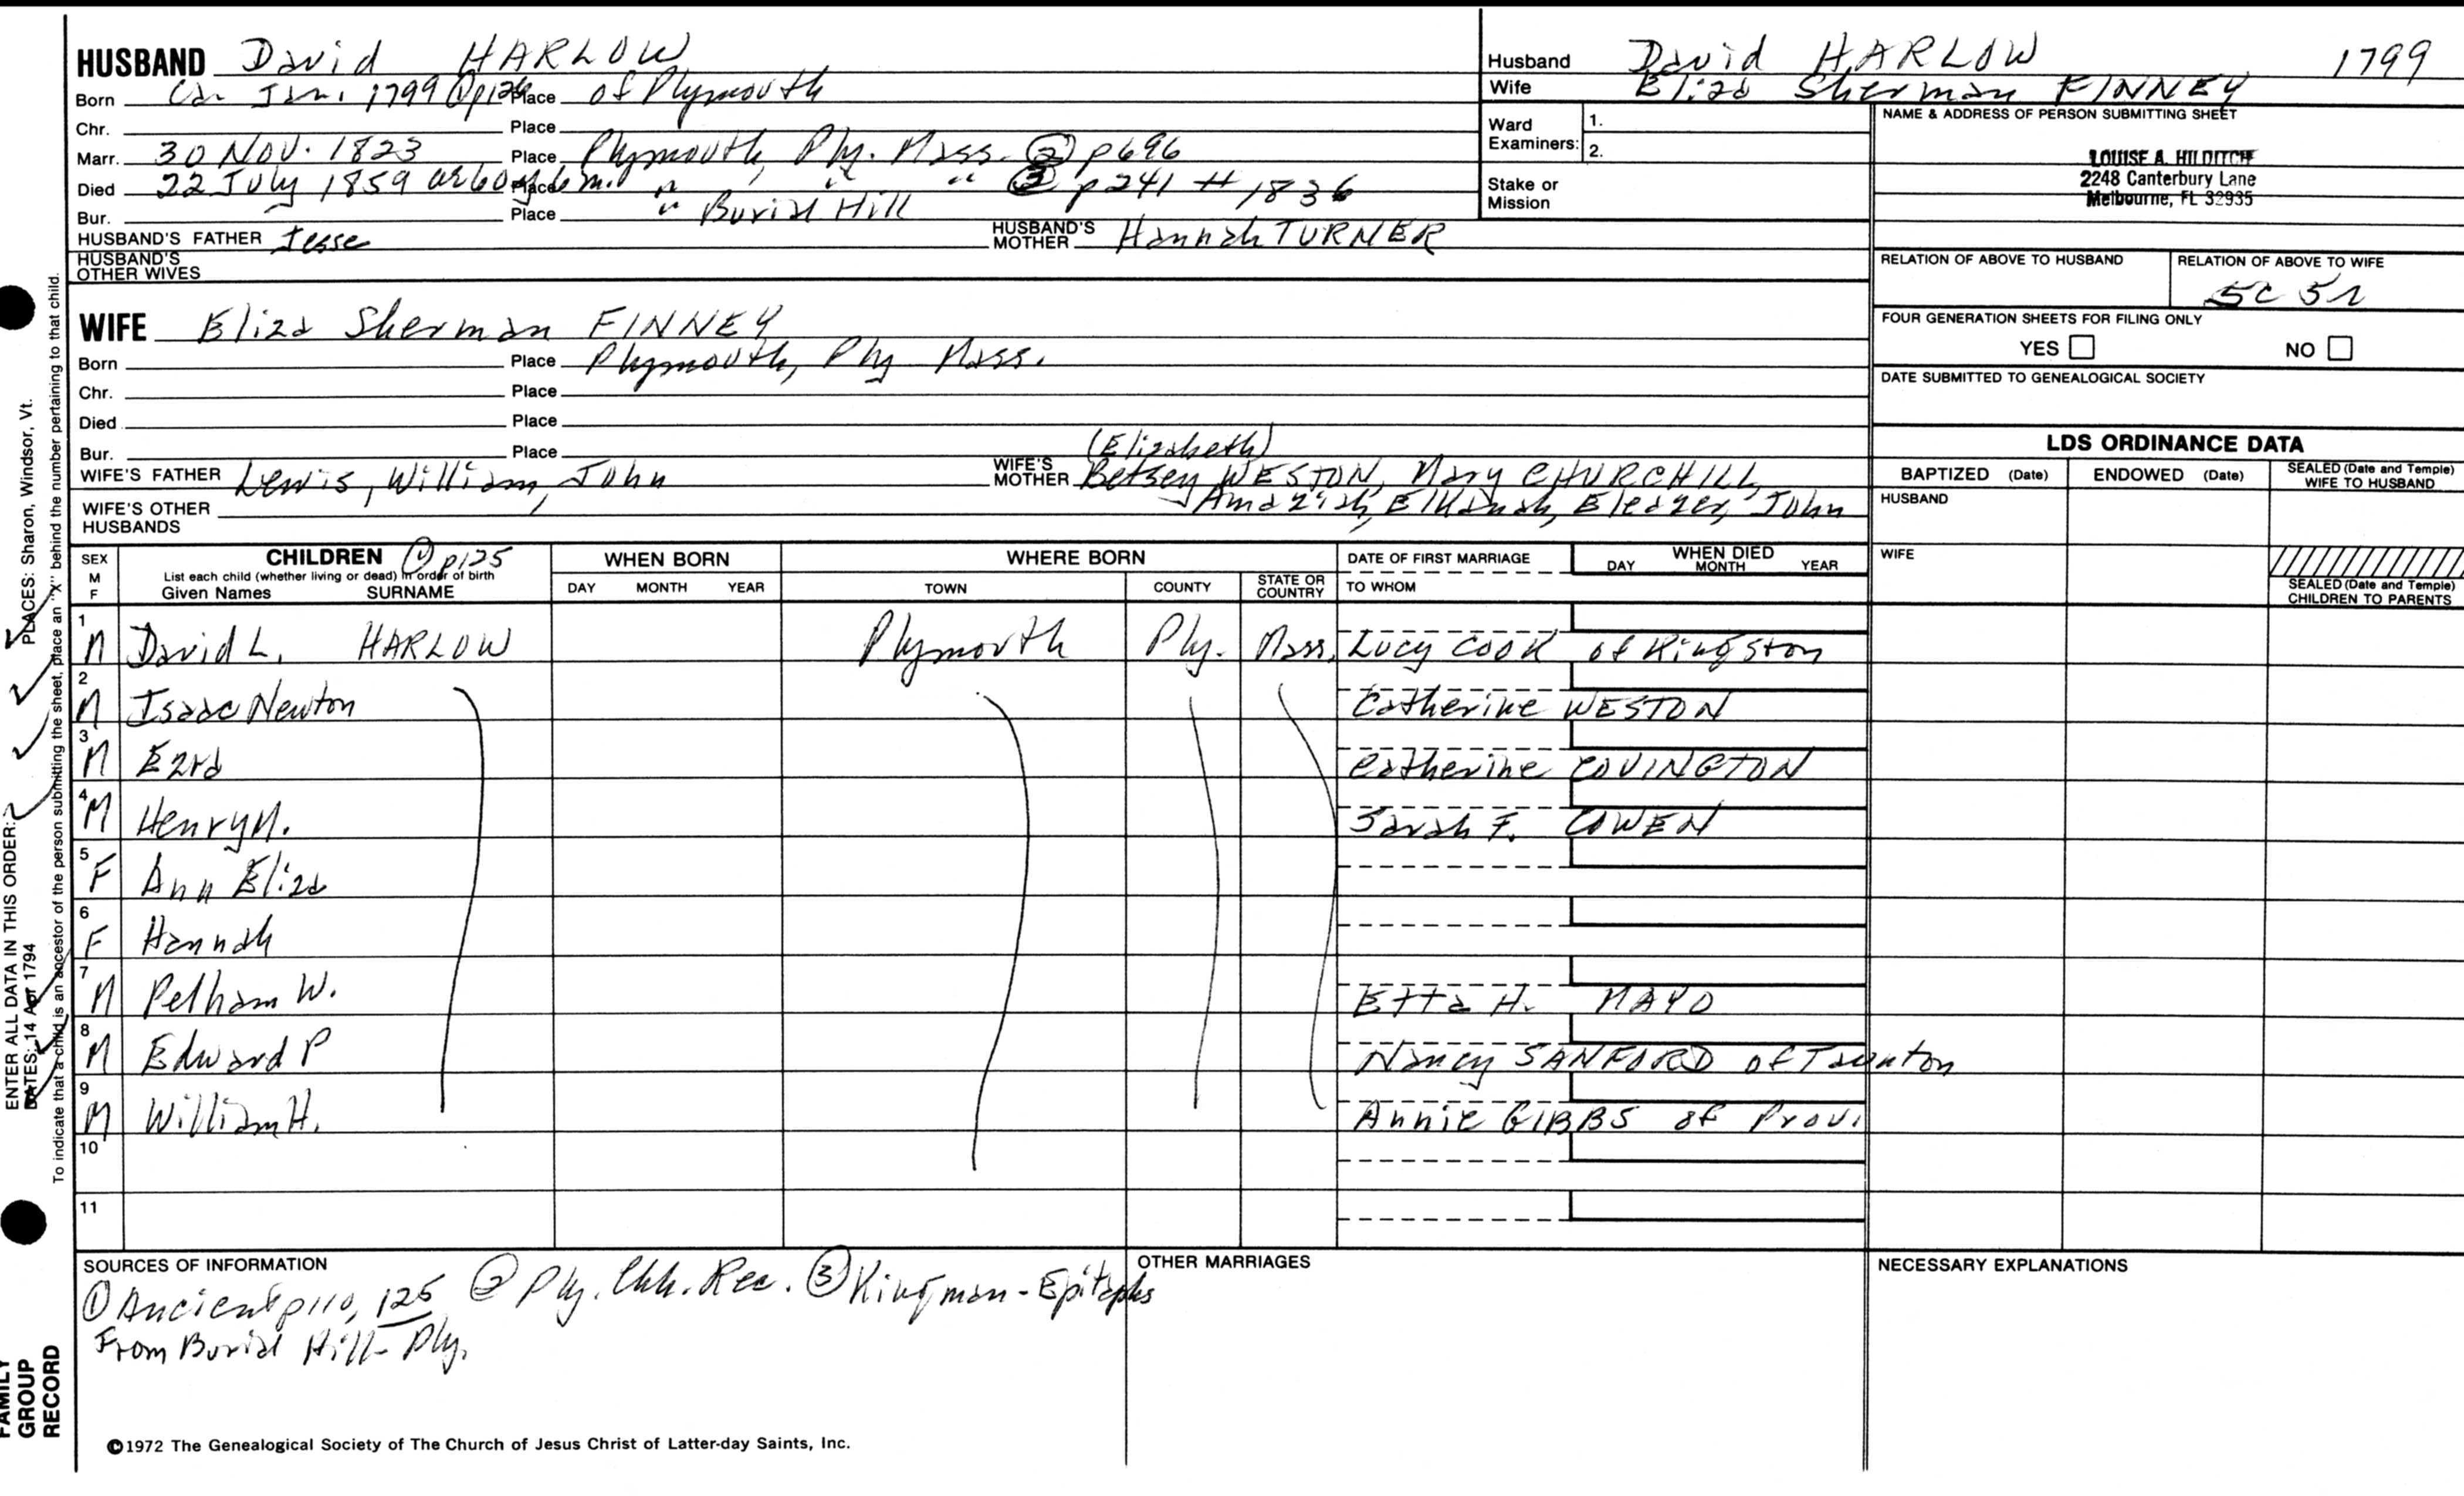 HUSBAND David HARLOW
Born Ca. Jan. 1799 ① p126 Place of Plymouth
Chr. Place
Marr. 30 Nov. 1823 Place Plymouth, Ply. Mass. ② p696
Died 22 July 1859 ae 60 y 6 m. Place " " " ③ p241 # 1836
Bur. Place " Burial Hill
HUSBAND'S FATHER Jesse HUSBAND'S MOTHER Hannah TURNER
HUSBAND'S OTHER WIVES
Husband David HARLOW 1799
Wife Eliza Sherman FINNEY
Ward Examiners: 1.
2.
Stake or Mission
NAME & ADDRESS OF PERSON SUBMITTING SHEET
LOUISE A. HILDITCH
2248 Canterbury Lane
Melbourne, FL 32935
RELATION OF ABOVE TO HUSBAND RELATION OF ABOVE TO WIFE
5C 5r
FOUR GENERATION SHEETS FOR FILING ONLY
YES NO
DATE SUBMITTED TO GENEALOGICAL SOCIETY
WIFE Eliza Sherman FINNEY
Born Place Plymouth, Ply Mass.
Chr. Place
Died Place
Bur. Place
(Elizabeth)
WIFE'S FATHER Lewis, William, John WIFE'S MOTHER Betsey WESTON, Mary CHURCHILL
WIFE'S OTHER HUSBANDS Amaziah, Elkanah, Eleazer, John
LDS ORDINANCE DATA
BAPTIZED (Date) ENDOWED (Date) SEALED (Date and Temple) WIFE TO HUSBAND
HUSBAND
WIFE
SEALED (Date and Temple) CHILDREN TO PARENTS
SEX M F
CHILDREN ① p125
List each child (whether living or dead) in order of birth
Given Names SURNAME
WHEN BORN
DAY MONTH YEAR
WHERE BORN
TOWN COUNTY STATE OR COUNTRY
DATE OF FIRST MARRIAGE
TO WHOM
WHEN DIED
DAY MONTH YEAR
1 M David L. HARLOW Plymouth Ply. Mass. Lucy COOK of Kingston
2 M Isaac Newton Catherine WESTON
3 M Ezra Catherine COVINGTON
4 M Henry M. Sarah F. COWEN
5 F Ann Eliza
6 F Hannah
7 M Pelham W. Etta H. MAYO
8 M Edward P Nancy SANFORD of Taunton
9 M William H. Annie GIBBS of Provi
10
11
SOURCES OF INFORMATION
① Ancient p110, 125 ② Ply. Chh. Rec. ③ Kingman - Epitaphs
From Burial Hill - Ply.
OTHER MARRIAGES
NECESSARY EXPLANATIONS
©1972 The Genealogical Society of The Church of Jesus Christ of Latter-day Saints, Inc.
FAMILY GROUP RECORD
ENTER ALL DATA IN THIS ORDER:
DATES: 14 Apr 1794 PLACES: Sharon, Windsor, Vt.
To indicate that a child is an ancestor of the person submitting the sheet, place an "X" behind the number pertaining to that child.